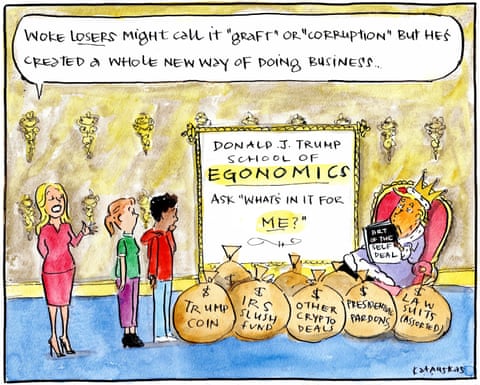 WOKE LOSERS MIGHT CALL IT "GRAFT" OR "CORRUPTION" BUT HE'S
CREATED A WHOLE NEW WAY OF DOING BUSINESS...
DONALD J. TRUMP
SCHOOL OF
EGONOMICS
ASK "WHAT'S IN IT FOR
ME?"
ART
OF THE
SELF
DEAL
$
TRUMP
COIN
$
IRS
SLUSH
FUND
$
OTHER
CRYPTO
DEALS
$
PRESIDENTIAL
PARDONS
$
LAW
SUITS
(ASSORTED)
Katauskas